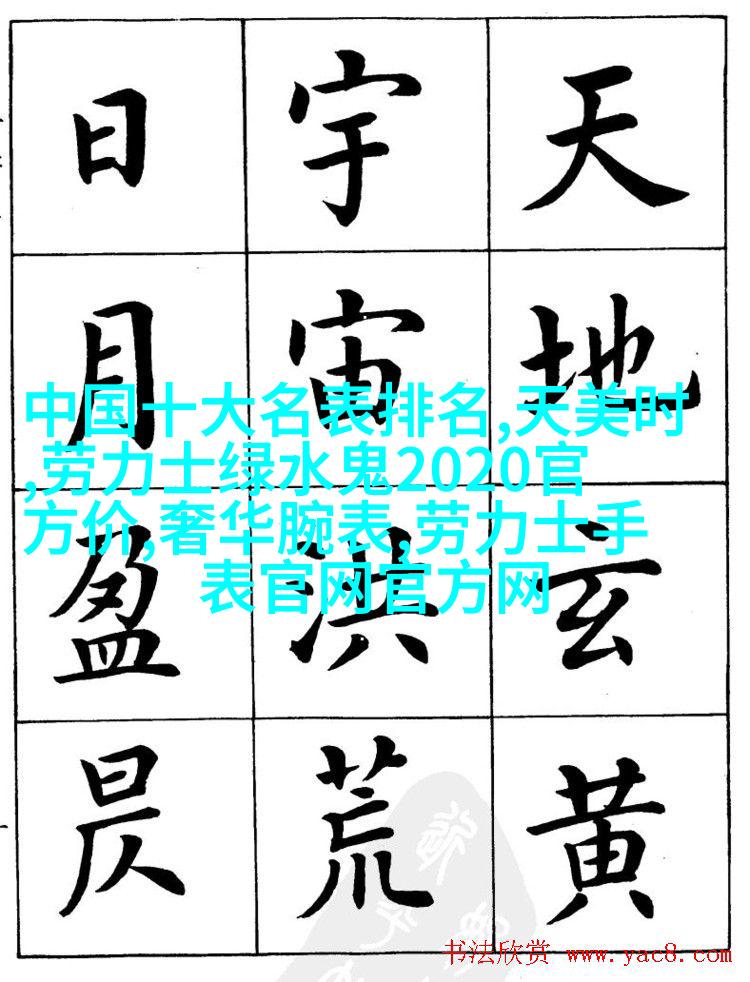 天地玄黄
宇宙洪荒
日月盈昃
中国十大名表排名,天美时
,劳力士绿水鬼2020官
方价,奢华腕表,劳力士手
表官网官方网
书法欣赏 www.yac8.com